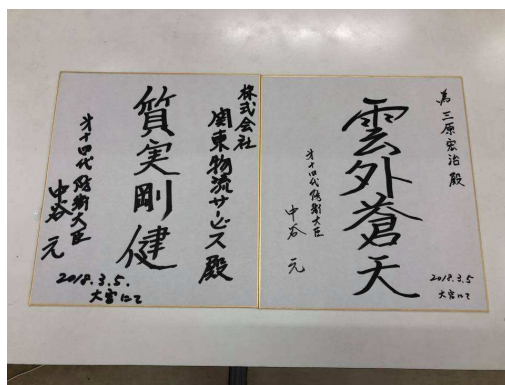 為 三原宏治 殿
雲外蒼天
第十四代防衛大臣
中谷 元
2018.3.5
大宮にて
株式会社
関東物流サービス 殿
質実剛健
第十四代防衛大臣
中谷 元
2018.3.5.
大宮にて